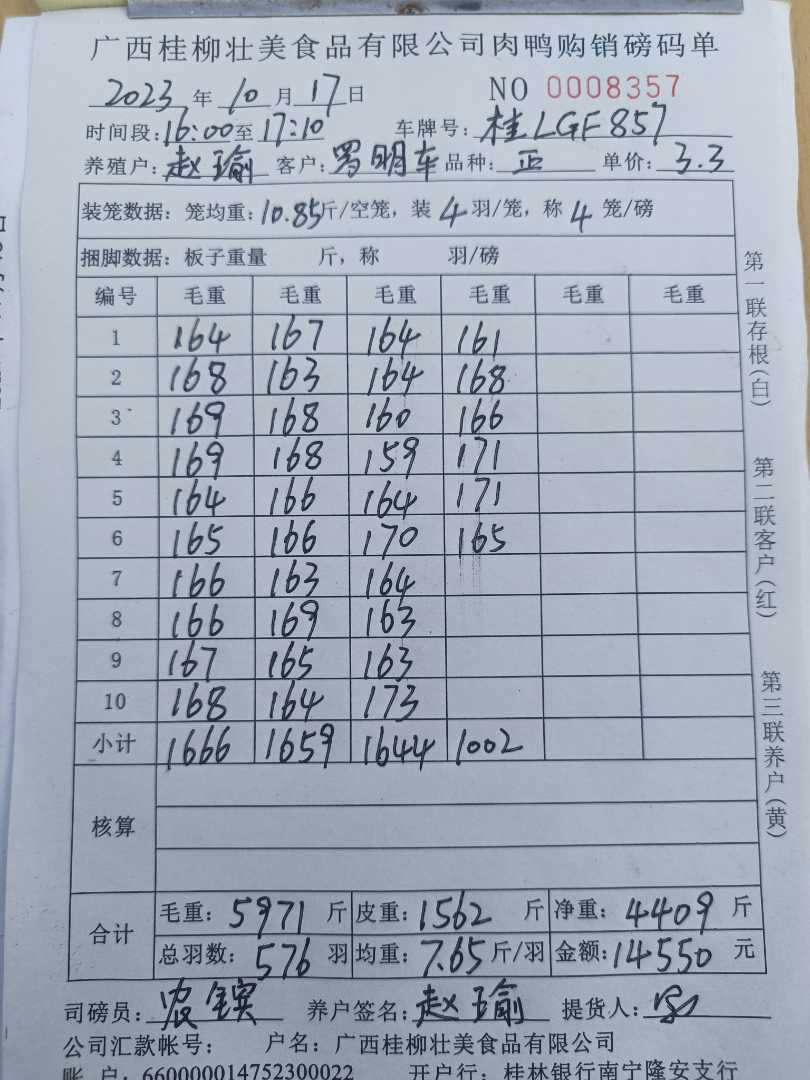 广西桂柳壮美食品有限公司肉鸭购销磅码单
2023年10月17日 NO 0008357
时间段:16:00至17:10 车牌号:桂LGF857
养殖户:赵瑜 客户:罗明车 品种:正 单价:3.3
装笼数据:笼均重:10.85斤/空笼,装4羽/笼,称4笼/磅
捆脚数据:板子重量 斤,称 羽/磅
编号 毛重 毛重 毛重 毛重 毛重 毛重
1 164 167 164 161
2 168 163 164 168
3 169 168 160 166
4 169 168 159 171
5 164 166 164 171
6 165 166 170 165
7 166 163 164
8 166 169 163
9 167 165 163
10 168 164 173
小计 1666 1659 1644 1002
核算
合计 毛重:5971斤 皮重:1562斤 净重:4409斤
总羽数:576羽 均重:7.65斤/羽 金额:14550元
司磅员:农 养户签名:赵瑜 提货人:
公司汇款帐号: 户名:广西桂柳壮美食品有限公司
账户:660000014752300022 开户行:桂林银行南宁隆安支行
第一联存根(白)
第二联客户(红)
第三联养户(黄)